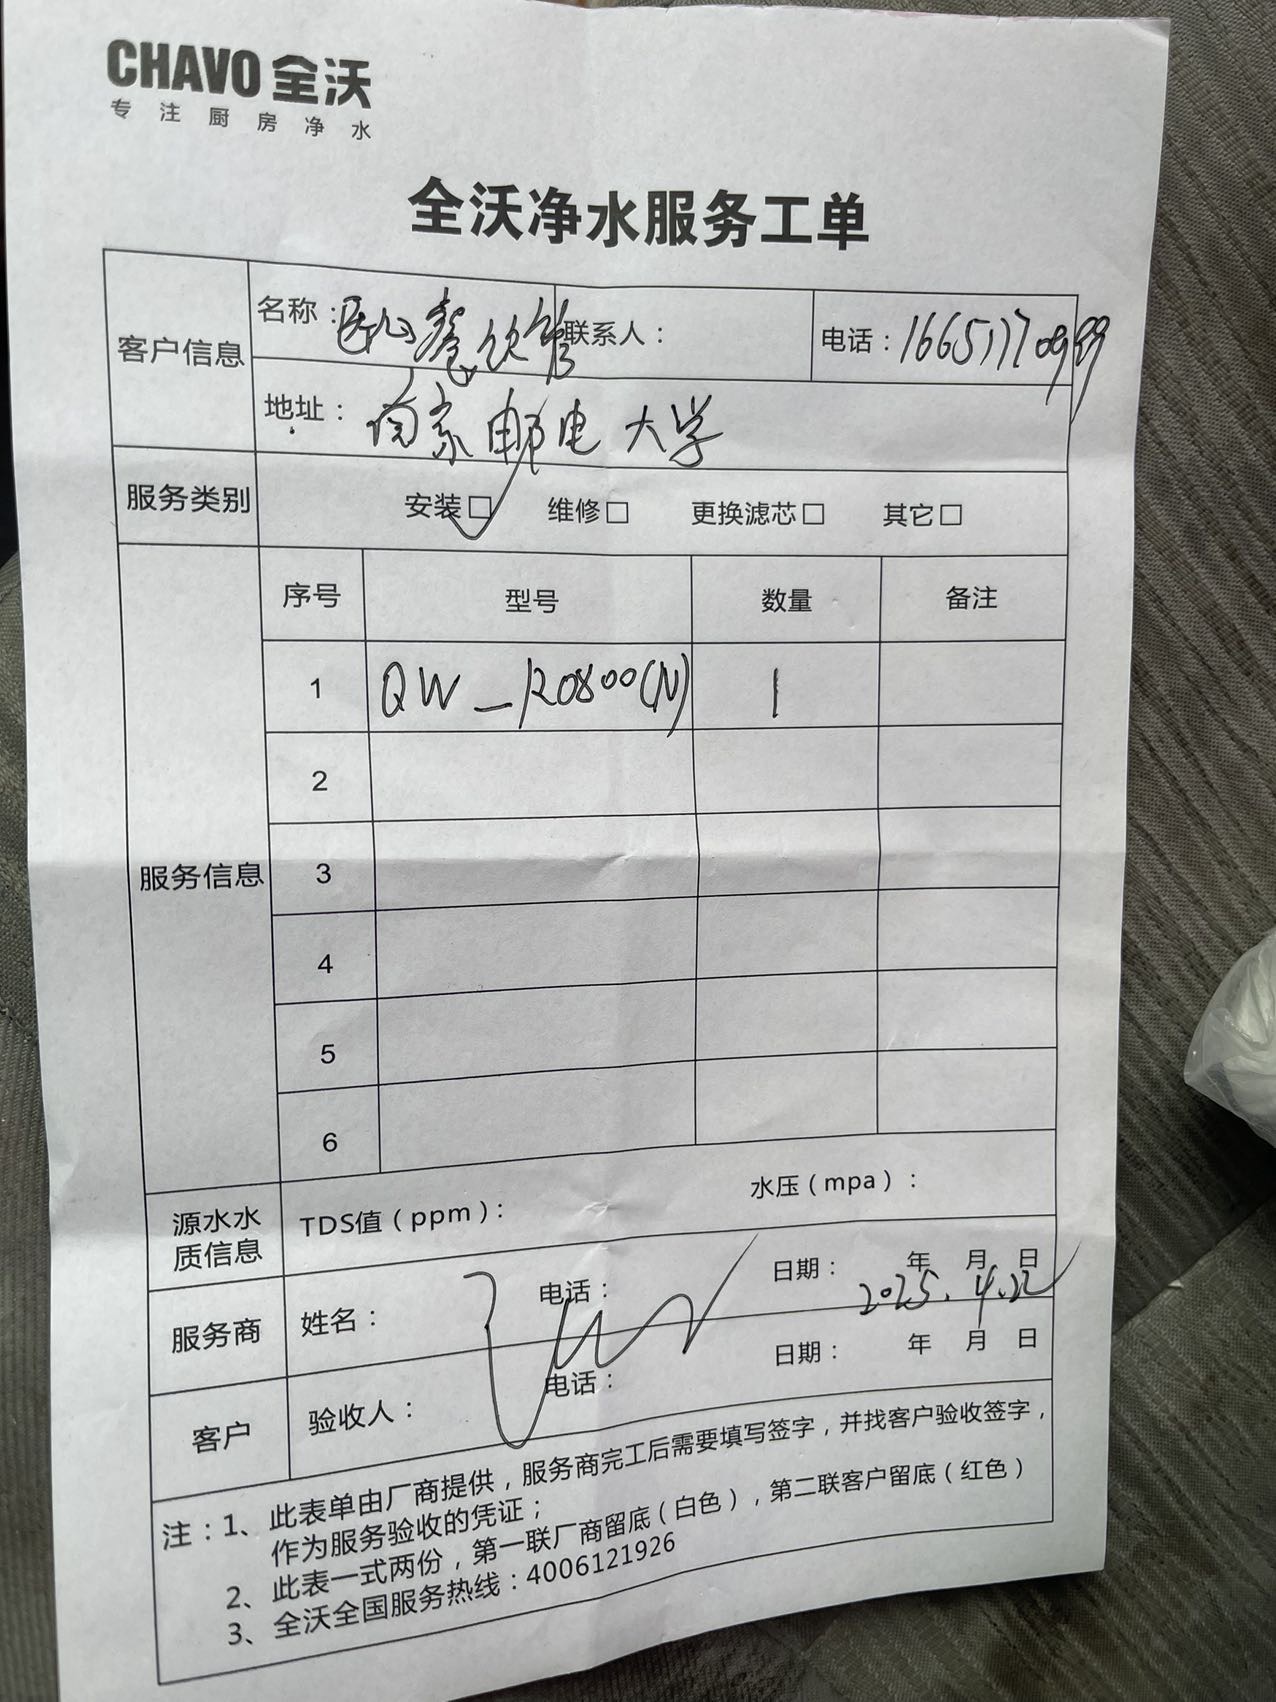 CHAVO 全沃
专注厨房净水
全沃净水服务工单
客户信息
名称： 餐饮管
联系人：
电话：
地址：南京邮电大学
服务类别
安装☑ 维修□ 更换滤芯□ 其它□
服务信息
序号 型号 数量 备注
1 QW-RO800(N) 1
2
3
4
5
6
源水水质信息
TDS值（ppm）： 水压（mpa）：
服务商 姓名： 电话： 日期： 年 月 日
2025.4.22
客户 验收人： 电话： 日期： 年 月 日
注：1、此表单由厂商提供，服务商完工后需要填写签字，并找客户验收签字，
作为服务验收的凭证；
2、此表一式两份，第一联厂商留底（白色），第二联客户留底（红色）
3、全沃全国服务热线：4006121926